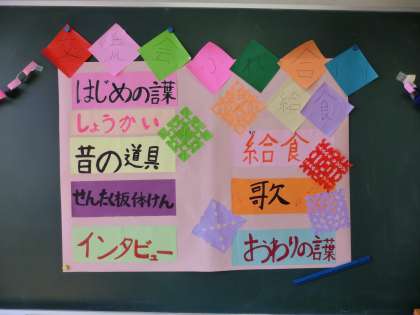 交流会ふれ合い
給食
はじめの言葉
しょうかい
昔の道具
せんたく板体けん
インタビュー
給食
歌
おわりの言葉